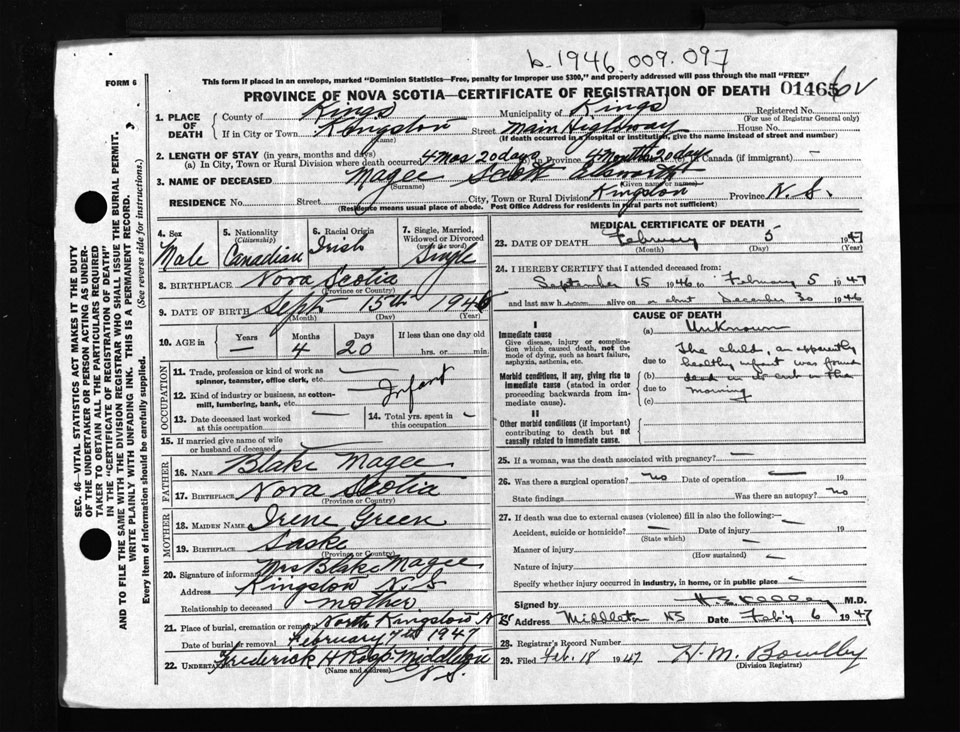 b.1946.009.097
FORM 6
This form if placed in an envelope, marked "Dominion Statistics—Free, penalty for improper use $300," and properly addressed will pass through the mail "FREE"
PROVINCE OF NOVA SCOTIA—CERTIFICATE OF REGISTRATION OF DEATH 01465
1. PLACE OF DEATH
County of Kings Municipality of Kings Registered No.
(For use of Registrar General only)
If in City or Town Kingston Street Main Highway House No.
(Name) (If death occurred in a hospital or institution, give the name instead of street and number)
2. LENGTH OF STAY (in years, months and days)
(a) In City, Town or Rural Division where death occurred 4 mos 20 days In Province 4 months 20 days In Canada (if immigrant) —
3. NAME OF DECEASED Magee Scott Elsworth
(Surname) (Given name or names)
RESIDENCE No. Street City, Town or Rural Division Kingston Province N.S.
(Residence means usual place of abode. Post Office Address for residents in rural parts not sufficient)
SEC. 46—VITAL STATISTICS ACT MAKES IT THE DUTY
OF THE UNDERTAKER OR PERSON ACTING AS UNDER-
TAKER TO OBTAIN ALL THE PARTICULARS REQUIRED
IN THE "CERTIFICATE OF REGISTRATION OF DEATH"
AND TO FILE THE SAME WITH THE DIVISION REGISTRAR WHO SHALL ISSUE THE BURIAL PERMIT.
WRITE PLAINLY WITH UNFADING INK. THIS IS A PERMANENT RECORD.
Every item of information should be carefully supplied. (See reverse side for instructions.)
4. Sex
Male
5. Nationality
(Citizenship)
Canadian
6. Racial Origin
Irish
7. Single, Married,
Widowed or Divorced
(write the word)
Single
8. BIRTHPLACE Nova Scotia
(Province or Country)
9. DATE OF BIRTH Sept. 15th 1946
(Month) (Day) (Year)
10. AGE in
Years Months Days If less than one day old
— 4 20 hrs. or min.
OCCUPATION
11. Trade, profession or kind of work as
spinner, teamster, office clerk, etc. —
12. Kind of industry or business, as cotton-
mill, lumbering, bank, etc. Infant
13. Date deceased last worked
at this occupation —
14. Total yrs. spent in
this occupation —
15. If married give name of wife
or husband of deceased —
FATHER
16. NAME Blake Magee
17. BIRTHPLACE Nova Scotia
(Province or Country)
MOTHER
18. MAIDEN NAME Irene Green
19. BIRTHPLACE Sask.
(Province or Country)
20. Signature of informant Mrs Blake Magee
Address Kingston N.S
Relationship to deceased mother
21. Place of burial, cremation or removal North Kingston N.S
Date of burial or removal February 7th 1947
22. UNDERTAKER Frederick H Middleton
(Name and address) N.S.
MEDICAL CERTIFICATE OF DEATH
23. DATE OF DEATH February 5 1947
(Month) (Day) (Year)
24. I HEREBY CERTIFY that I attended deceased from:
September 15 1946 to February 5 1947
and last saw h alive on or about December 30 1946
CAUSE OF DEATH
I
Immediate cause
Give disease, injury or complica-
tion which caused death, not the
mode of dying, such as heart failure,
asphyxia, asthenia, etc.
Morbid conditions, if any, giving rise to
immediate cause (stated in order
proceeding backwards from im-
mediate cause).
II
Other morbid conditions (if important)
contributing to death but not
causally related to immediate cause.
(a) Unknown
The child, an apparently
due to healthy infant was found
(b) dead in its crib in the
due to morning
(c)
25. If a woman, was the death associated with pregnancy? —
26. Was there a surgical operation? No Date of operation — 19
State findings Was there an autopsy? No
27. If death was due to external causes (violence) fill in also the following:—
Accident, suicide or homicide? — Date of injury — 19
(State which)
Manner of injury —
(How sustained)
Nature of injury —
Specify whether injury occurred in industry, in home, or in public place —
Signed by H.E. Kelley M.D.
Address Middleton NS Date Feb'y 6 1947
28. Registrar's Record Number
29. Filed Feb. 18 1947 H. M.
(Division Registrar)